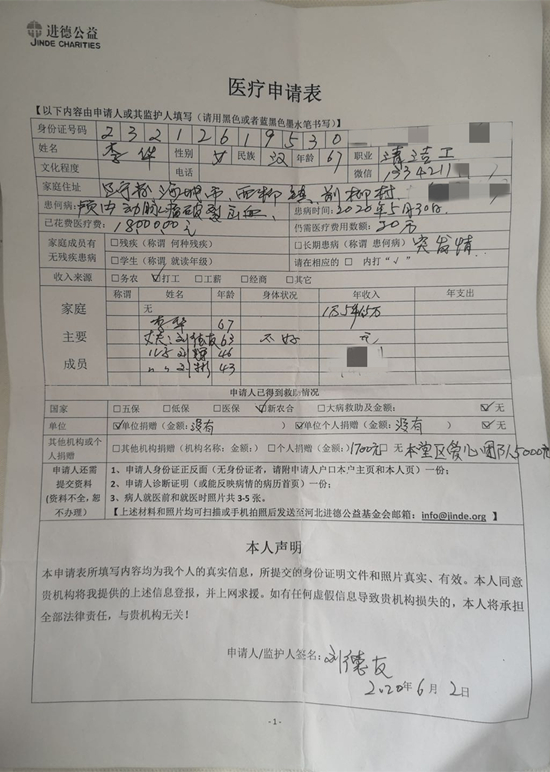 进德公益
JINDE CHARITIES
医疗申请表
【以下内容由申请人或其监护人填写（请用黑色或者蓝黑色墨水笔书写）】
身份证号码 2 3 2 1 2 6 1 9 5 3 0
姓名 李华 性别 女 民族 汉 年龄 67 职业 清洁工
文化程度 电话 微信 1334211
家庭住址 海城市、西柳镇、前柳村
患何病: 颅内动脉瘤破裂出血、 患病时间: 2020年5月30日
已花费医疗费: 1800000元 仍需医疗费用数额: 20万
家庭成员有无残疾患病 □残疾（称谓 何种残疾） □长期患病（称谓 患病何） 突发情
□学生（称谓 就读年级） 请在相应的 □ 内打"√"
收入来源 □务农 ☑打工 □工薪 □经商 □其它
家庭主要成员 称谓 姓名 年龄 身体状况 年收入 年支出
无
李华 67
丈夫 刘德友 63 不好 元
儿子 刘 46
〃 〃 刘彬 43
申请人已得到救 情况
国家 □五保 □低保 □医保 ☑新农合 □大病救助及金额: ☑无
单位 ☑单位捐赠（金额: 没有） ☑单位个人捐赠（金额: 没有） ☑无
其他机构或个人捐赠 □其他机构捐赠（机构名称: 金额:） □个人捐赠（金额:）1700元 □ 无 本堂区爱心团队5000元
申请人还需提交资料（资料不全，恕不办理）
1、申请人身份证正反面（无身份证者，请附申请人户口本户主页和本人页）一份;
2、申请人诊断证明（或能反映病情的病历首页）一份;
3、病人就医前和就医时照片共 3-5 张。
【上述材料和照片均可扫描或手机拍照后发送至河北进德公益基金会邮箱: info@jinde.org】
本人声明
本申请表所填写内容均为我个人的真实信息，所提交的身份证明文件和照片真实、有效。本人同意
贵机构将我提供的上述信息登报，并上网求援。如有任何虚假信息导致贵机构损失的，本人将承担
全部法律责任，与贵机构无关！
申请人/监护人签名: 刘德友
2020年6月2日
- 1 -